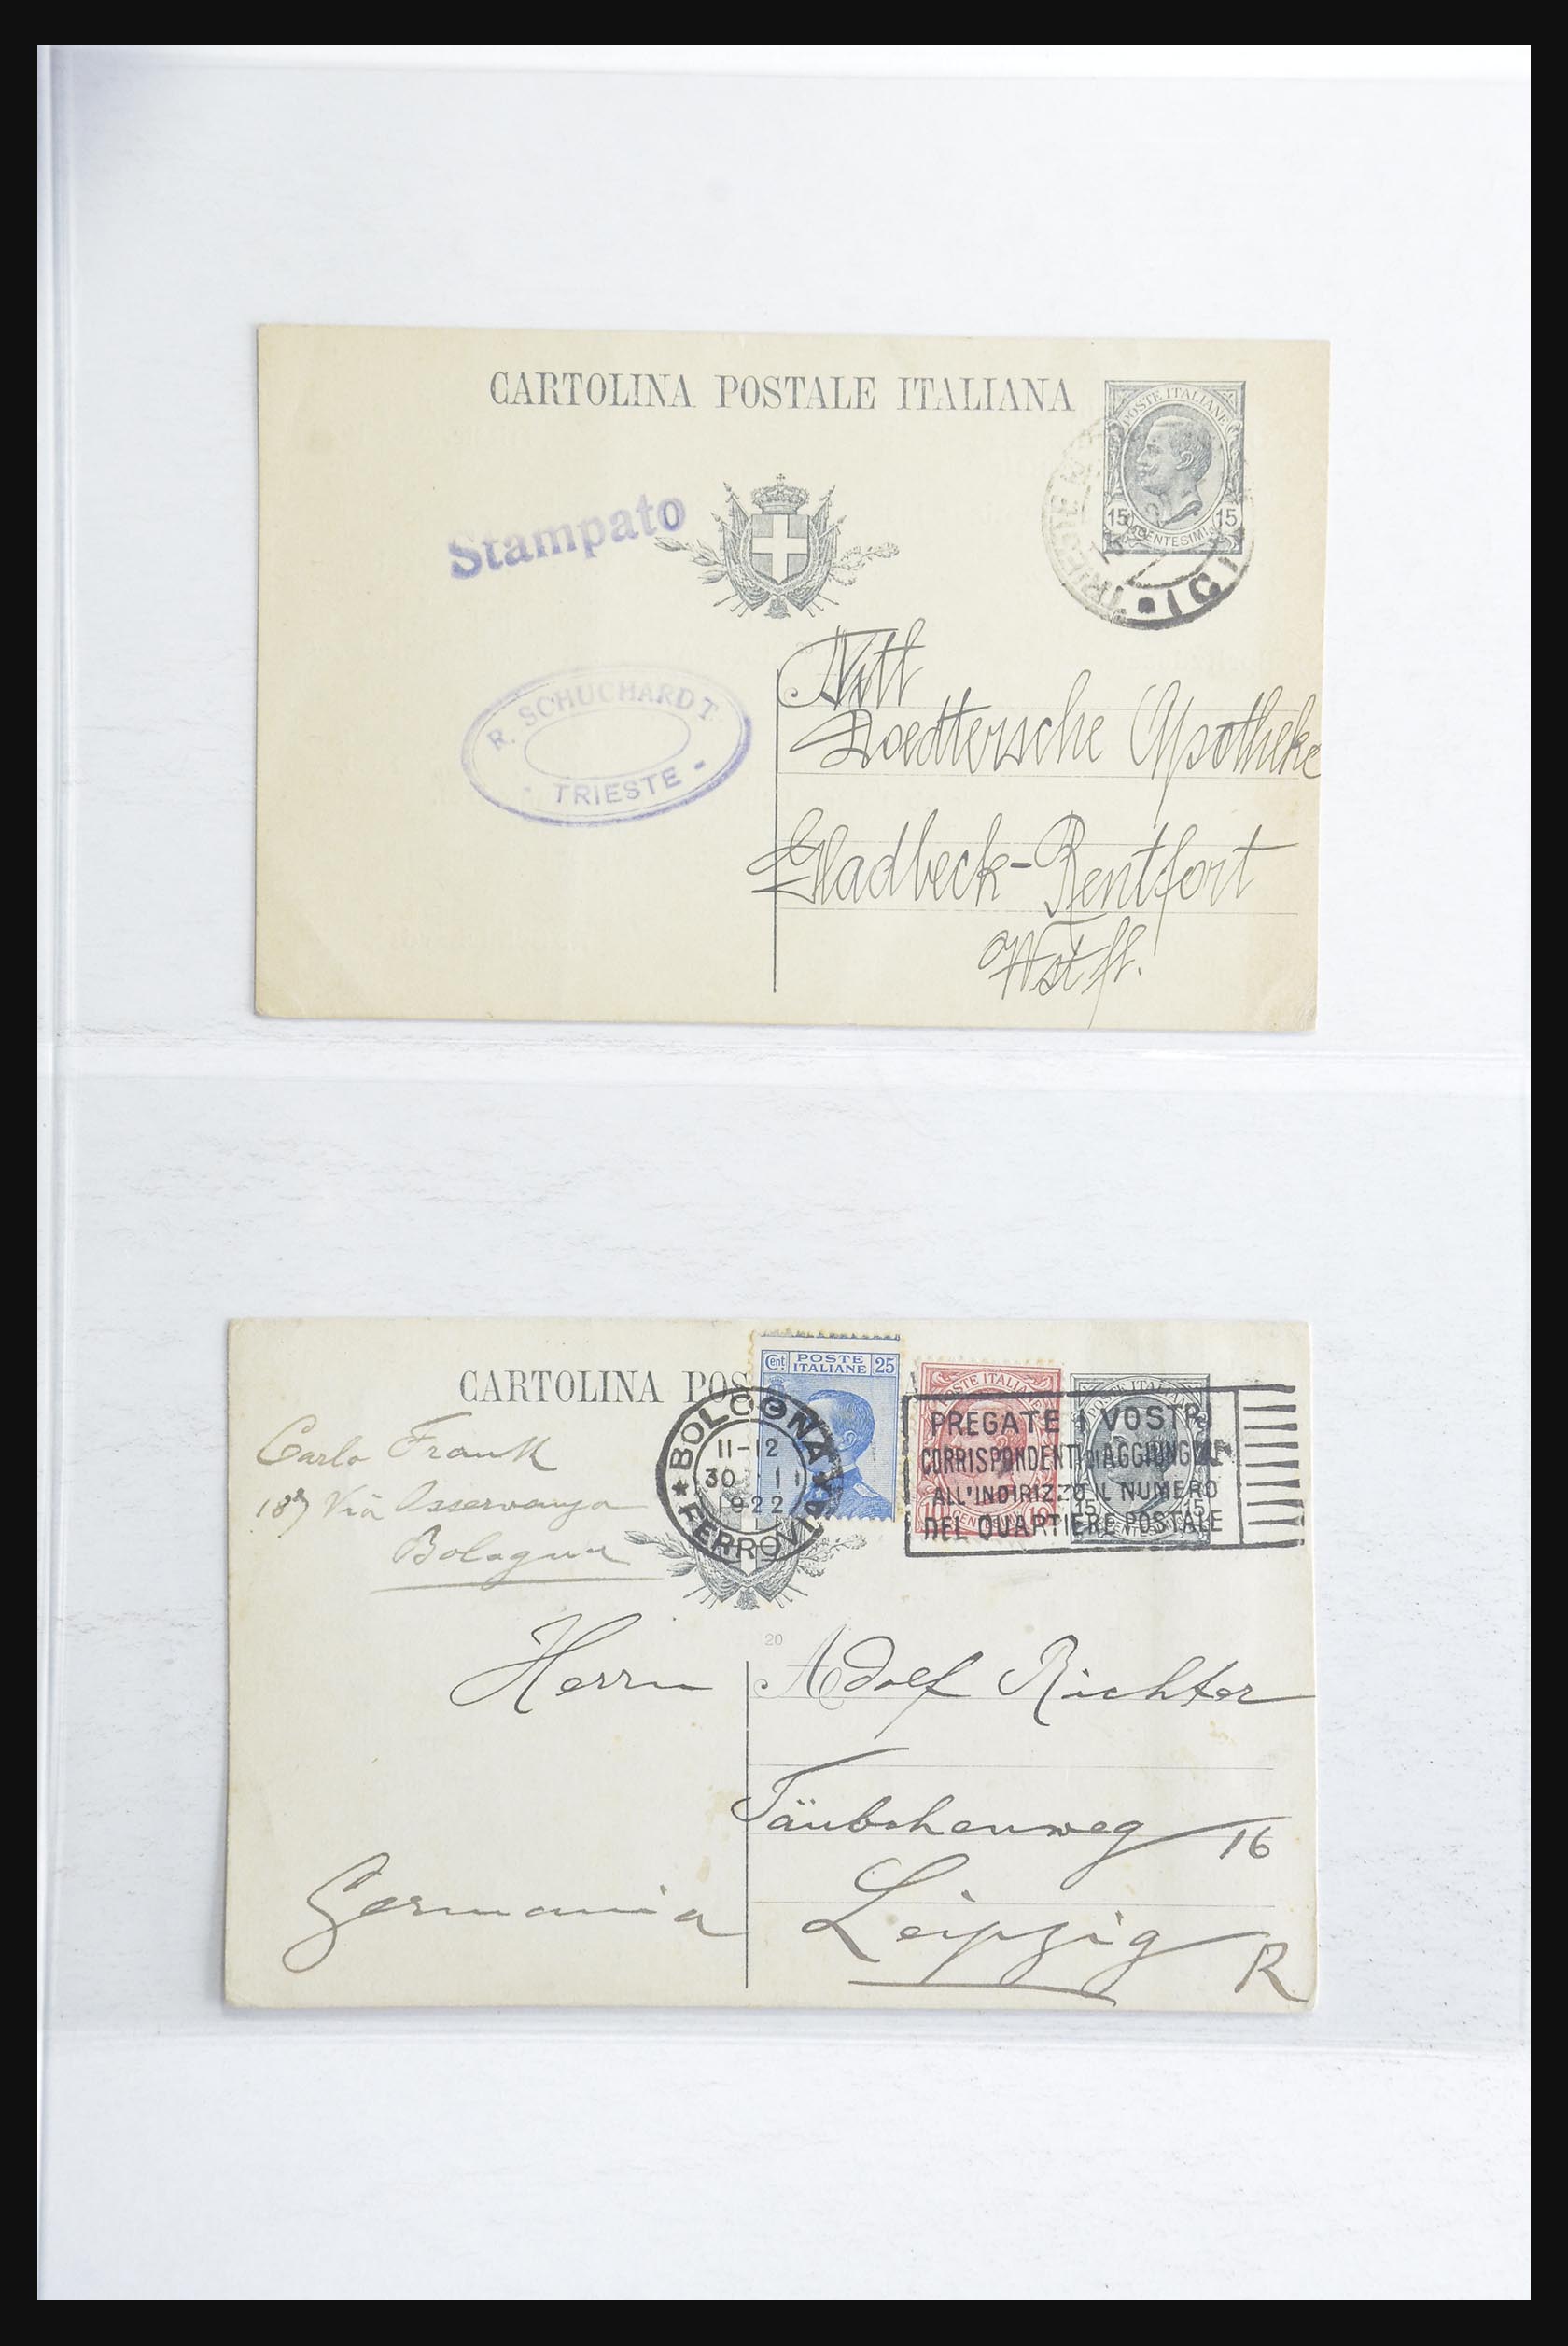 CARTOLINA POSTALE ITALIANA
POSTE ITALIANE
15 15
CENTESIMI
Stampato
R. SCHUCHARDT
- TRIESTE -
Apotheke
Gladbeck-Rentfort
Westf.
CARTOLINA POS
Cent POSTE ITALIANE 25
POSTE ITALIANE
10 CENTESIMI 10
POSTE ITALIANE
15 15
BOLOGNA
11-12
30
1922
FERROVIA
PREGATE I VOSTRI
CORRISPONDENTI DI AGGIUNGERE
ALL'INDIRIZZO IL NUMERO
DEL QUARTIERE POSTALE
Carlo Frank
187 Via Osservanza
Bologna
20
Herrn Adolf Richter
Täubchenweg 16
Germania Leipzig R